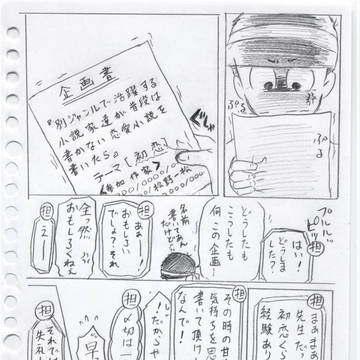 ぷる
ぷる
企画書
『別ジャンルで活躍する
小説家達が普段は
書かない恋愛小説を
書いたら。』
テーマ【初恋】
<参加作家>
プルルル
ピッ
担 はい！
どうしま
した？
どうしたも
こうしたも
何この企画！
名前
書いてあん
だけど！
担 あ！
おもしろい
でしょ？それ
全っ然
おもしろくねぇ
担 え
担 まぁまぁ
先生だっ
初恋く
経験あり
担 その時の甘
気持ちを思
書いて頂け
なんで！
〆切は一
早
担 それで
失礼